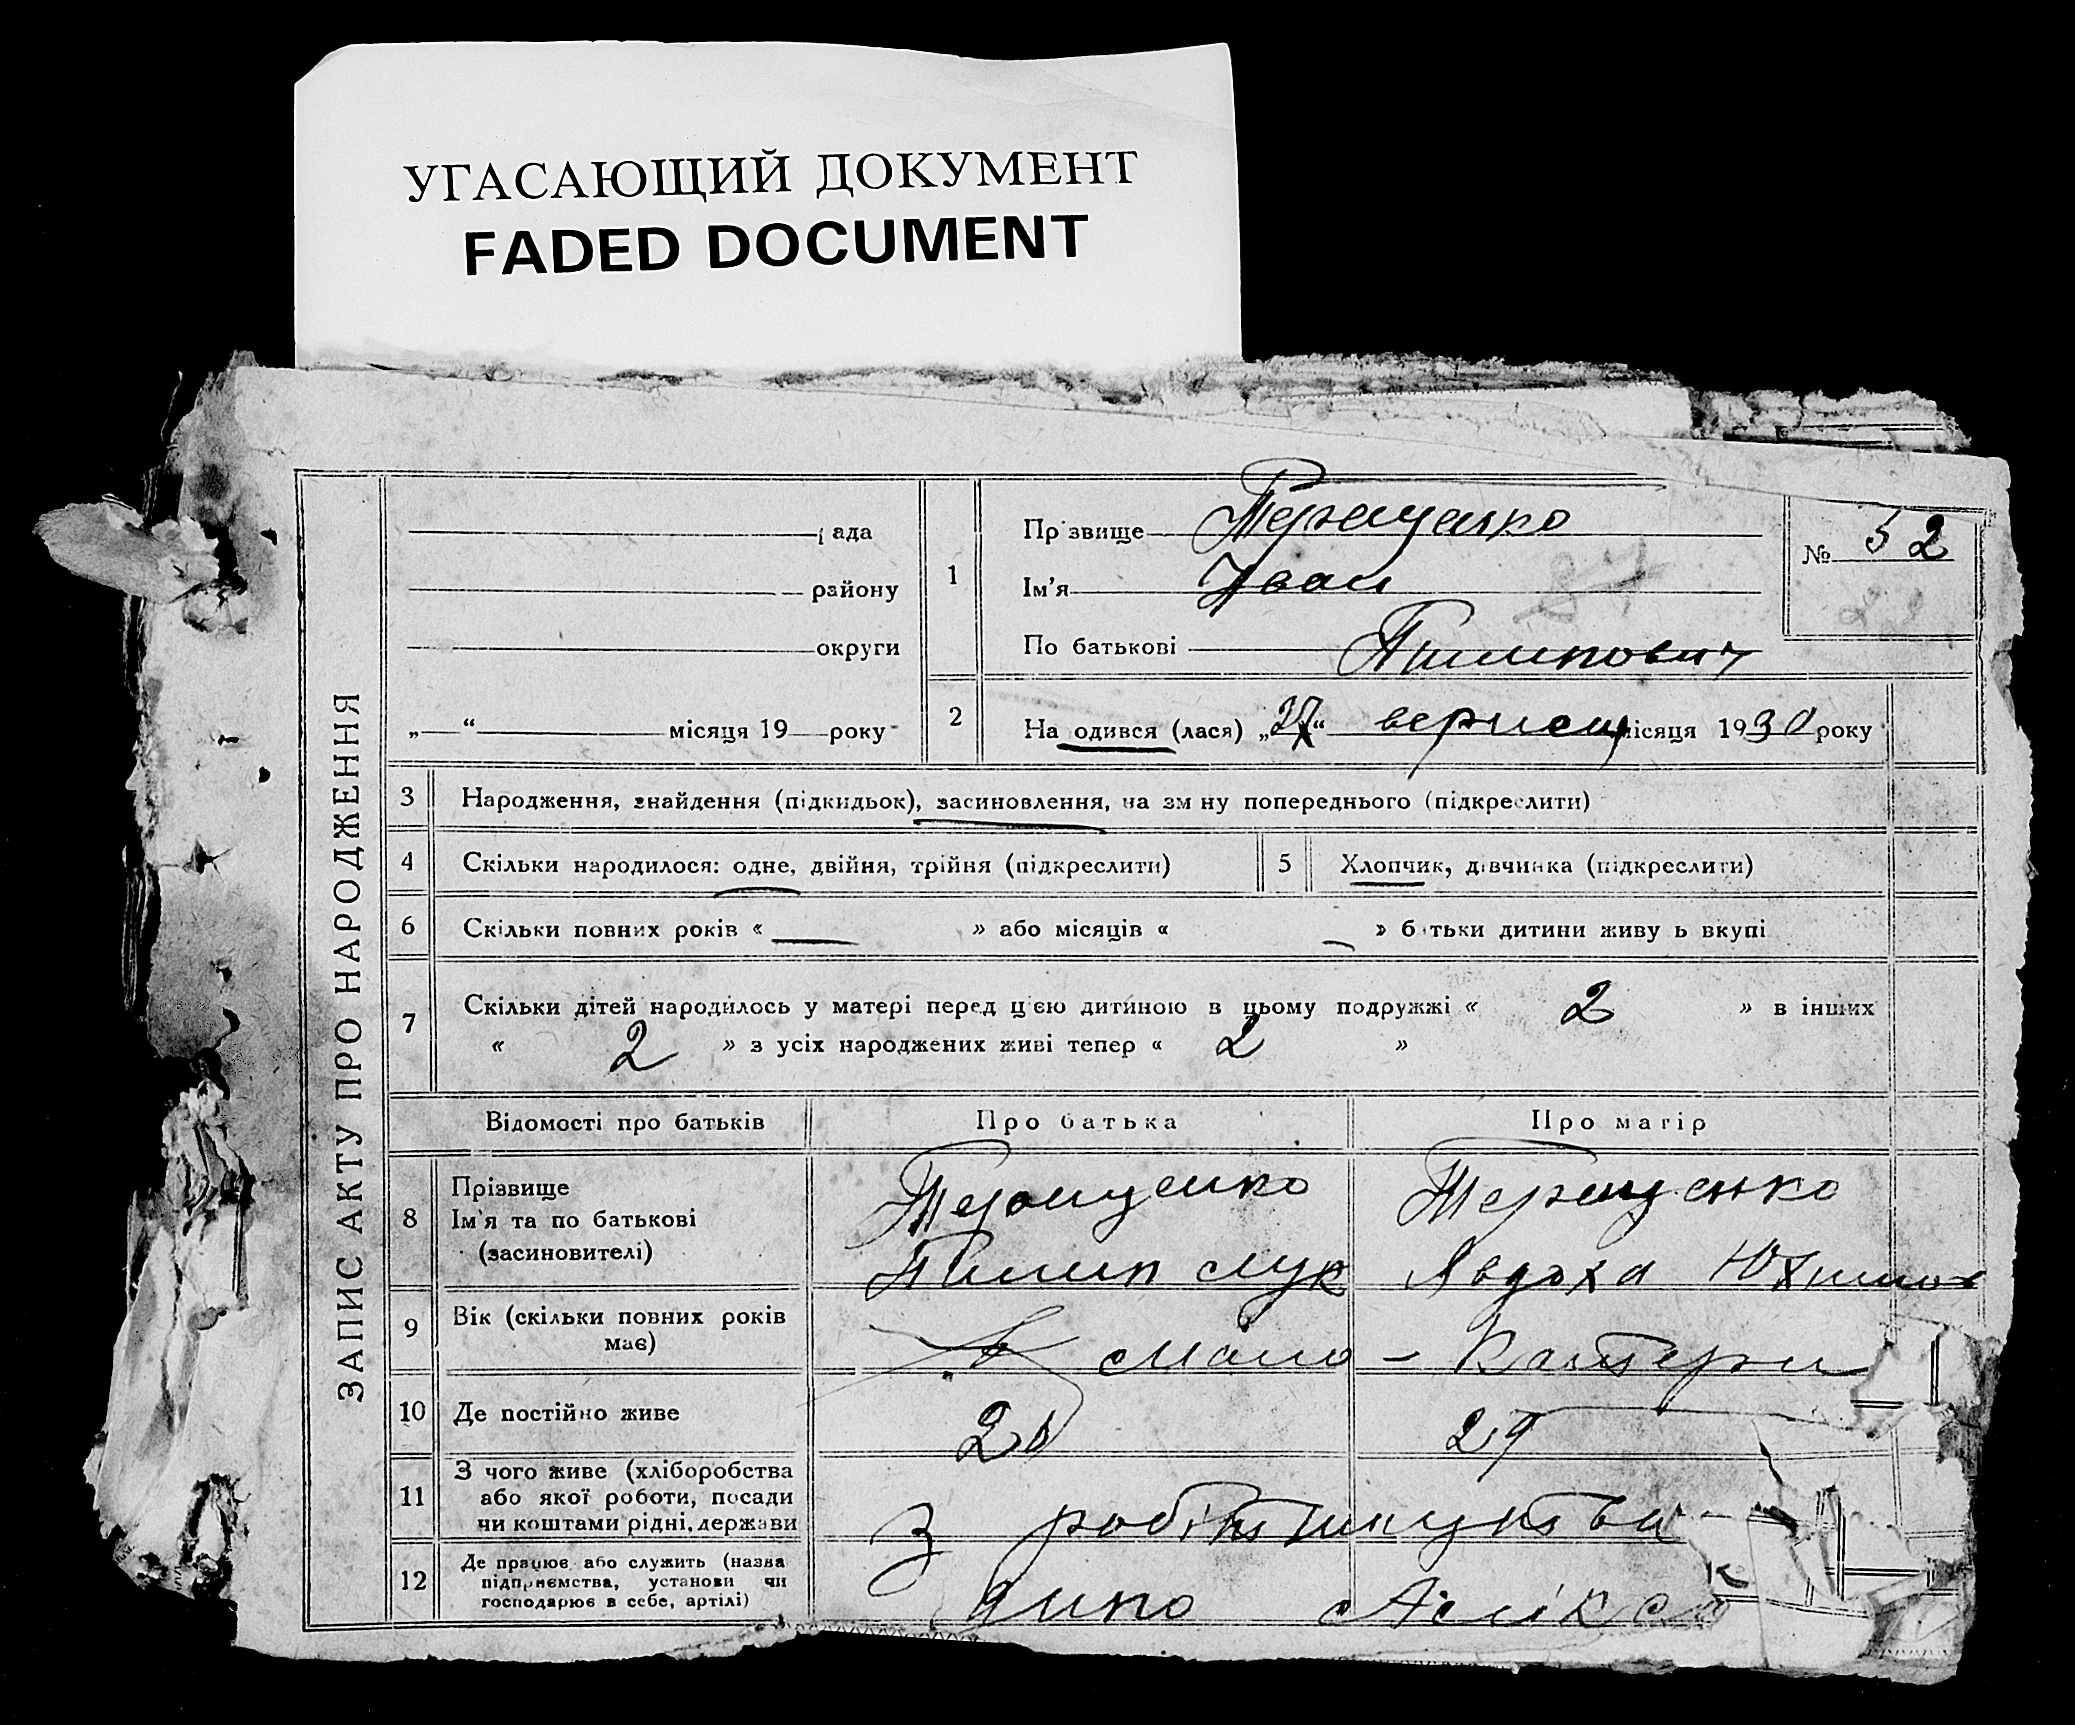 УГАСАЮЩИЙ ДОКУМЕНТ
FADED DOCUMENT
ЗАПИС АКТУ ПРО НАРОДЖЕННЯ
рада
району
округи
„ “ місяця 19 року
1
Прізвище Терещенко
Ім'я Іван
По батькові Пилипович
№ 52
2
Народився (лася) „27“ вересня місяця 1930 року
3 Народження, знайдення (підкидьок), засиновлення, на зміну попереднього (підкреслити)
4 Скільки народилося: одне, двійня, трійня (підкреслити)
5 Хлопчик, дівчинка (підкреслити)
6 Скільки повних років « — » або місяців « — » батьки дитини живуть вкупі
7 Скільки дітей народилось у матері перед цією дитиною в цьому подружжі « 2 » в інших
« 2 » з усіх народжених живі тепер « 2 »
Відомості про батьків Про батька Про матір
8 Прізвище
Ім'я та по батькові
(засиновителі)
Терещенко Терещенко
Пилип Лук Явдоха Юхимов
9 Вік (скільки повних років
має)
10 Де постійно живе
29
11 З чого живе (хліборобства
або якої роботи, посади
чи коштами рідні, держави
З робітництва
12 Де працює або служить (назва
підприємства, установи чи
господарює в себе, артілі)